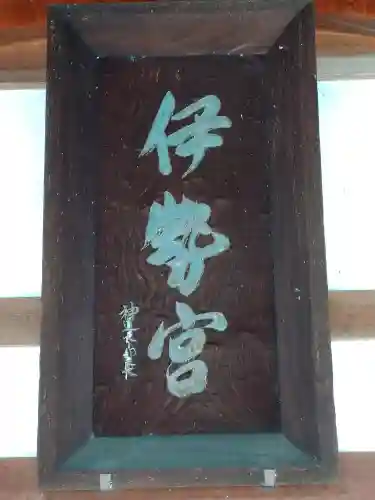 伊勢宮